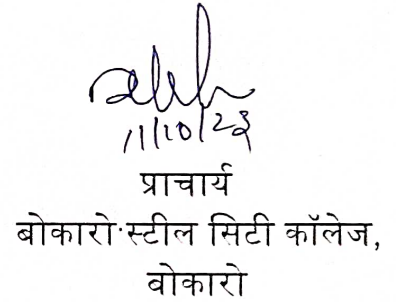 11/10/23
प्राचार्य
बोकारो स्टील सिटी कॉलेज,
वोकारो